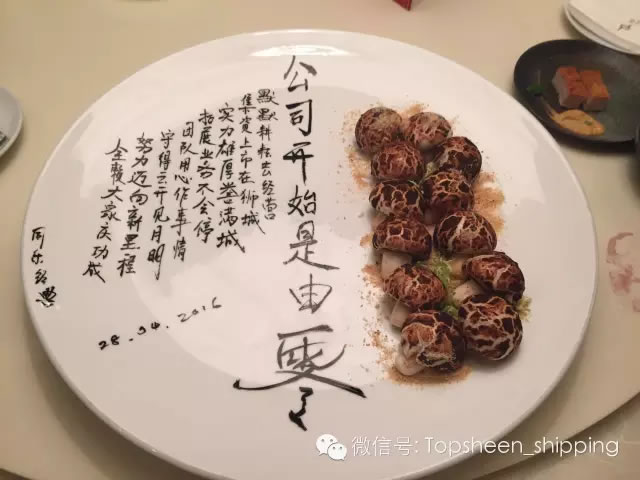 公司开始是由零
默默耕耘去经营
集资上市在狮城
实力雄厚誉满城
拓展业务不会停
团队用心作事情
守得云开见月明
努力迈向新里程
全體大家庆功成
同乐经典
28.04.2016
微信号: Topsheen_shipping